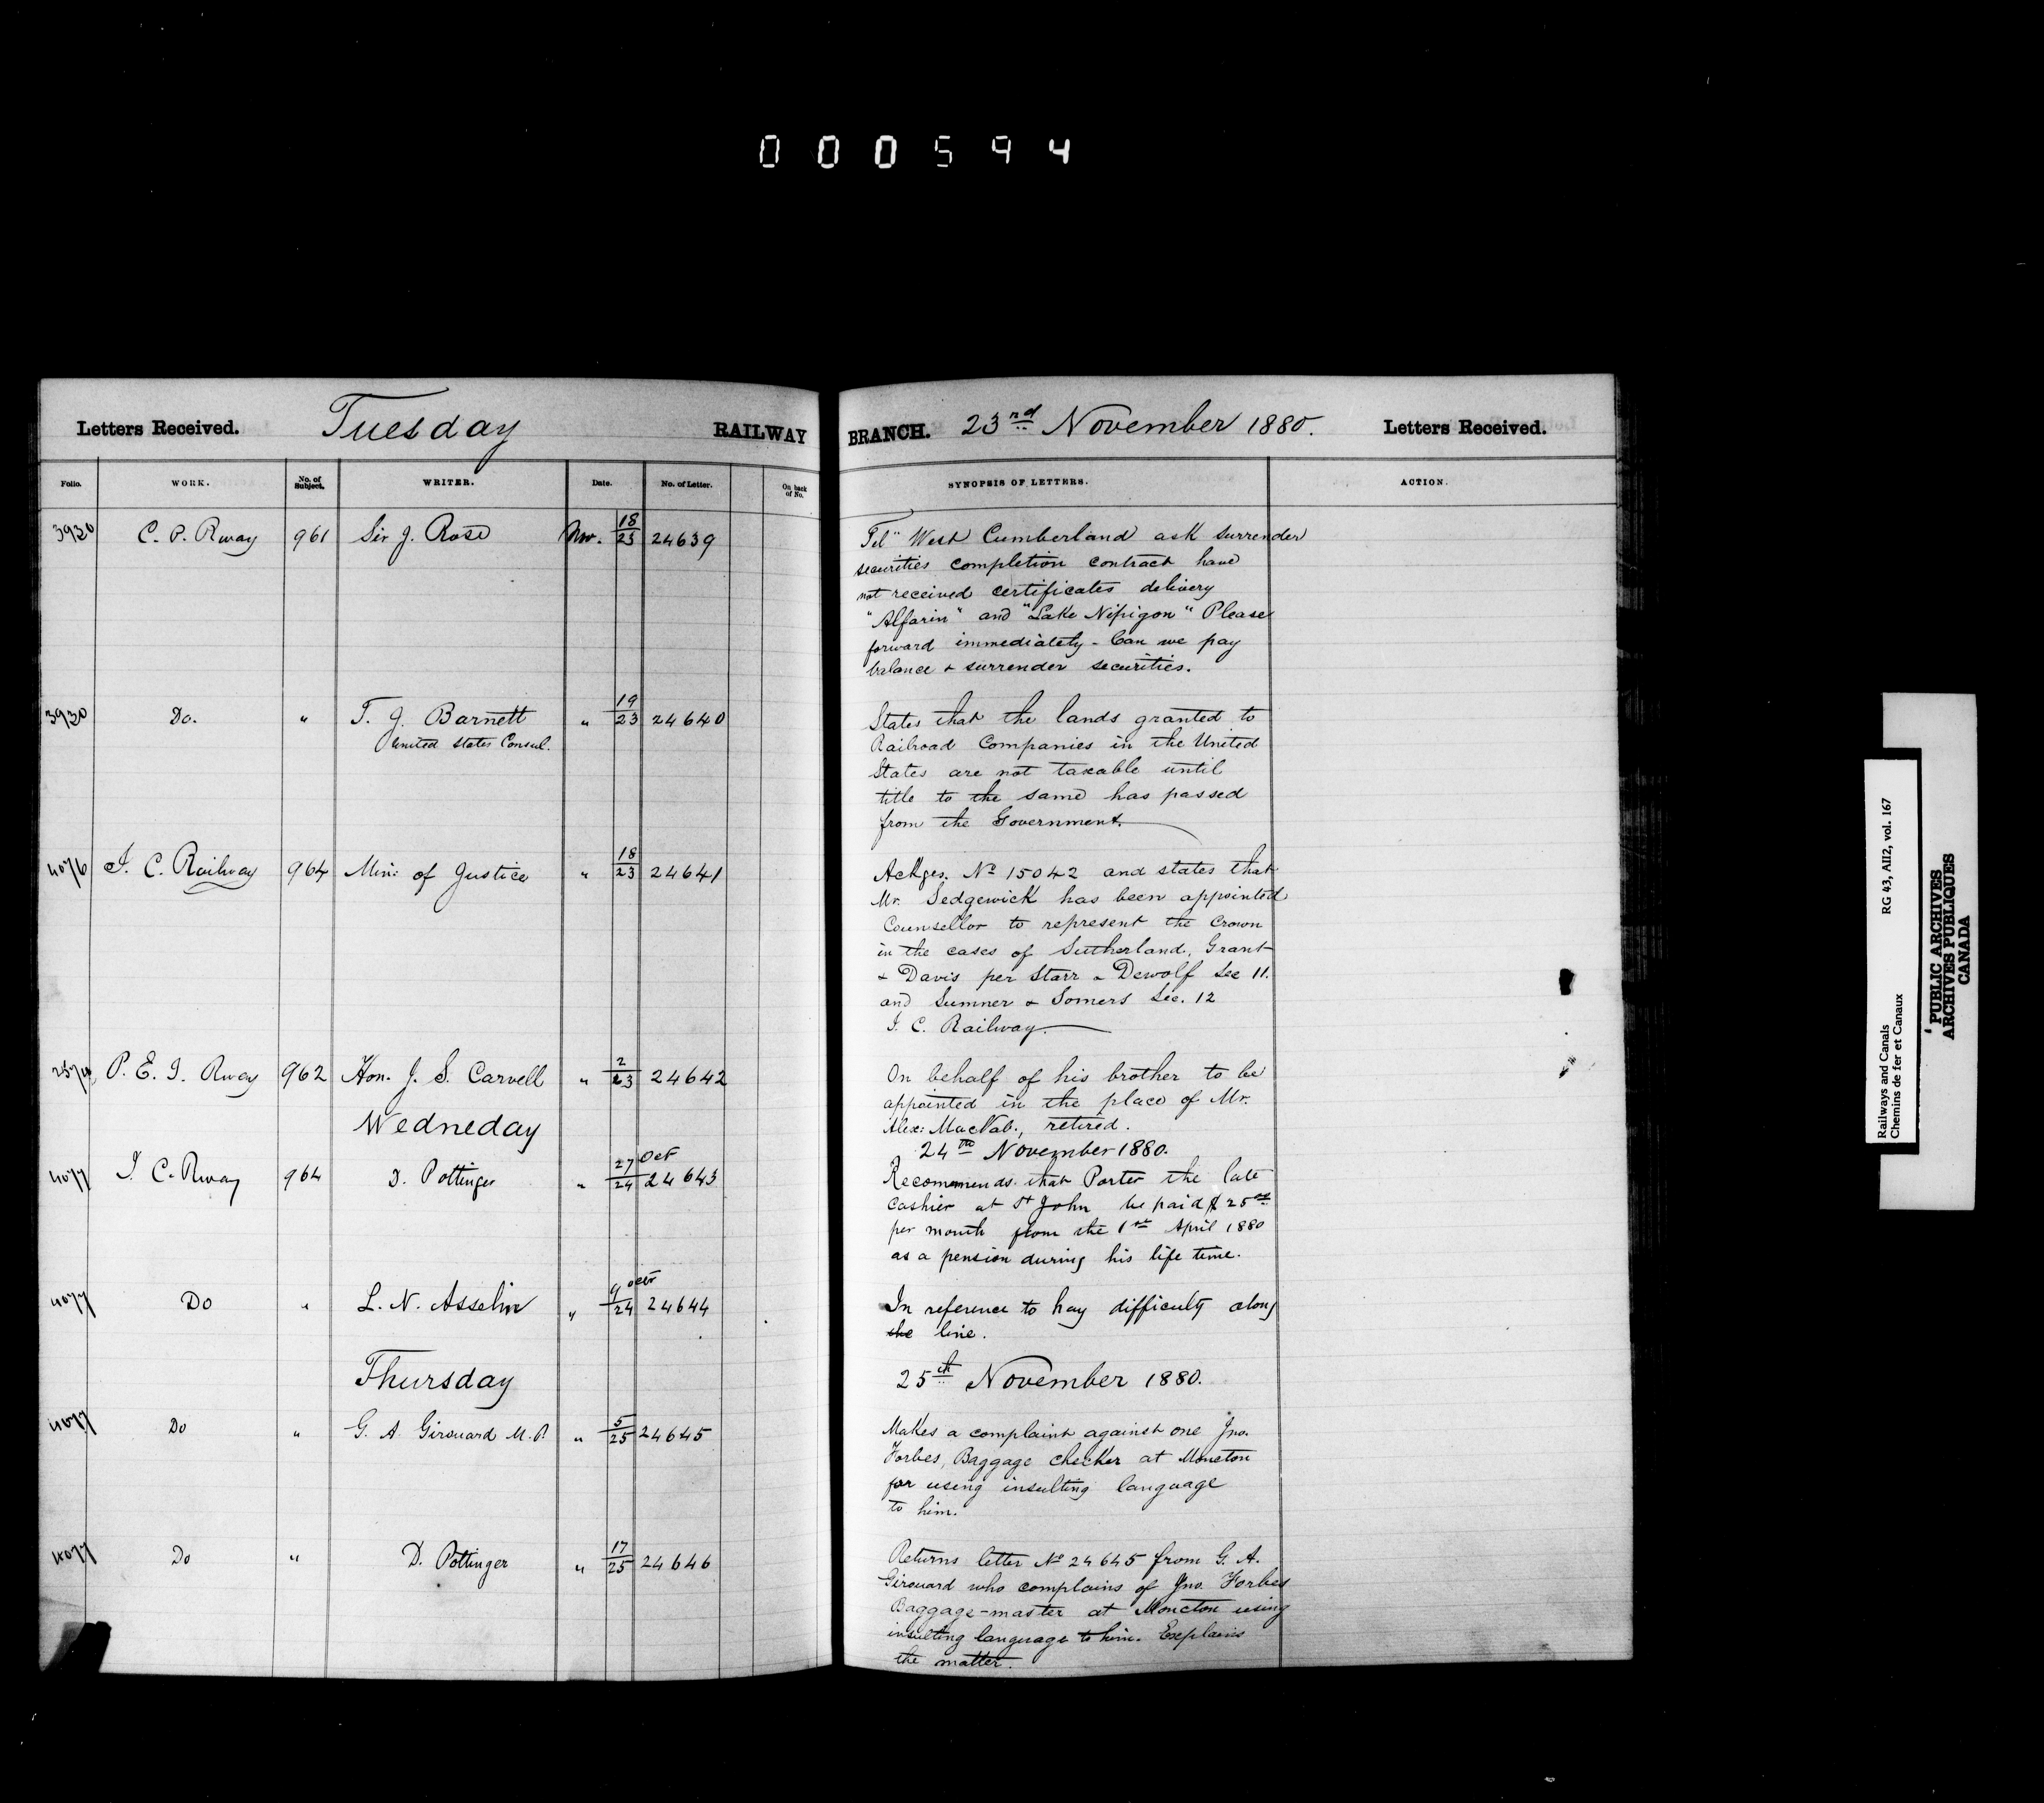 000594
Letters Received. Tuesday RAILWAY BRANCH. 23rd November 1880. Letters Received.
Folio. WORK. No. of Subject. WRITER. Date. No. of Letter. On back of No. SYNOPSIS OF LETTERS. ACTION.
3930 C. P. Rway 961 Sir J. Rose Nov. 18/23 24639
Tel" West Cumberland ask surrender
securities completion contract have
not received certificates delivery
"Alfarin" and "Lake Nipigon" Please
forward immediately - Can we pay
balance & surrender securities.
3930 Do. " T. J. Barnett " 19/23 24640
United States Consul.
States that the lands granted to
Railroad Companies in the United
States are not taxable until
title to the same has passed
from the Government.
4076 I. C. Railway 964 Min: of Justice " 18/23 24641
Ackges. No 15042 and states that
Mr. Sedgewick has been appointed
Counsellor to represent the Crown
in the cases of Sutherland, Grant
& Davis per Starr & Dewolf Sec 11.
and Sumner & Somers Sec. 12
I. C. Railway.
P. E. I. Rway 962 Hon. J. S. Carvell " 2/23 24642
On behalf of his brother to be
appointed in the place of Mr.
Alex: MacNab., retired.
Wedneday 24th November 1880.
4077 I. C. Rway 964 D. Pottinger " 27 Oct/24 24643
Recommends that Porter the late
Cashier at St John be paid $25.00
per month from the 1st April 1880
as a pension during his life time.
4077 Do " L. N. Asselin " 9 Oct/24 24644
In reference to hay difficulty along
the line.
Thursday 25th November 1880.
4077 Do " G. A. Girouard M.P. " 5/25 24645
Makes a complaint against one Jno.
Forbes, Baggage checker at Moncton
for using insulting language
to him.
4077 Do " D. Pottinger " 17/25 24646
Returns letter No 24645 from G. A.
Girouard who complains of Jno. Forbes
Baggage-master at Moncton using
insulting language to him. Explains
the matter.
Railways and Canals RG 43, AII2, vol. 167
Chemins de fer et Canaux
PUBLIC ARCHIVES
ARCHIVES PUBLIQUES
CANADA